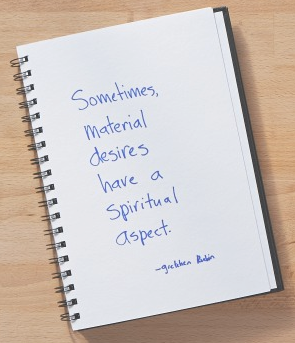 Sometimes,
material
desires
have a
spiritual
aspect.
-gretchen Rubin